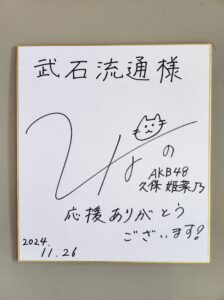 武石流通様
ひなの
AKB48
久保姫菜乃
応援ありがとう
ございます!
2024.
11.26